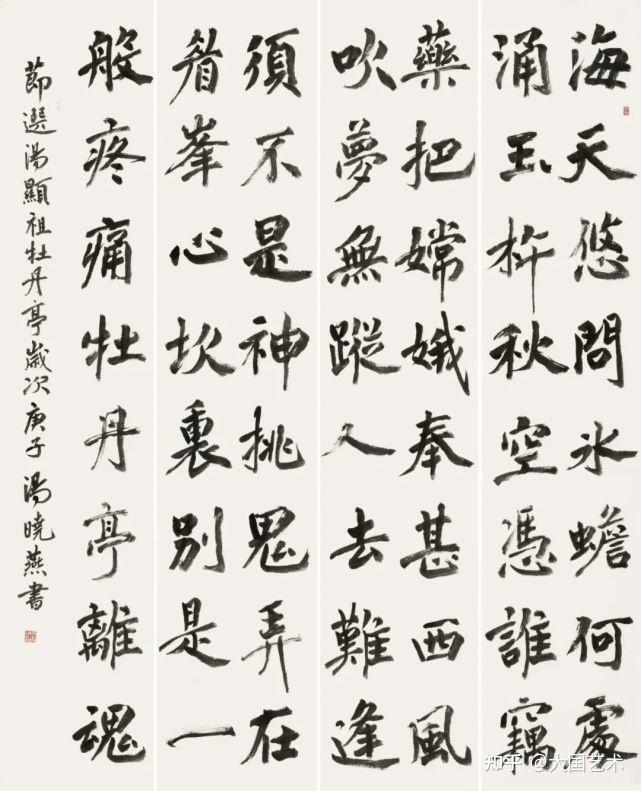 海天悠問氷蟾何處
涌玉杵秋空憑誰竊
藥把嫦娥奉甚西風
吹夢無蹤人去難逢
須不是神挑鬼弄在
眉峯心坎裏別是一
般疼痛牡丹亭離魂
節選湯顯祖牡丹亭歲次庚子湯曉燕書
知乎 @大国艺术